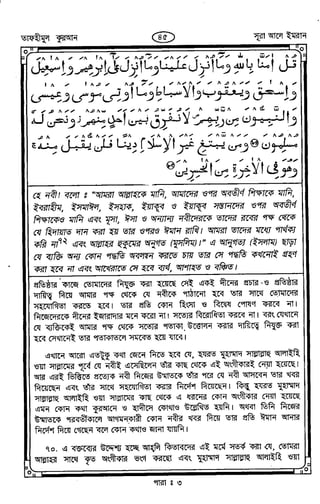 তাফহীমুল কুরআন
৪৫
সূরা আলে ইমরান
قُلْ اٰمَنَّا بِاللّٰهِ وَمَآ اُنْزِلَ عَلَيْنَا وَمَآ اُنْزِلَ عَلٰٓى اِبْرٰهِيْمَ وَاِسْمٰعِيْلَ
وَاِسْحٰقَ وَيَعْقُوْبَ وَالْاَسْبَاطِ وَمَآ اُوْتِىَ مُوْسٰى وَعِيْسٰى
وَالنَّبِيُّوْنَ مِنْ رَّبِّهِمْ لَا نُفَرِّقُ بَيْنَ اَحَدٍ مِّنْهُمْ وَنَحْنُ لَهٗ
مُسْلِمُوْنَ وَمَنْ يَّبْتَغِ غَيْرَ الْاِسْلَامِ دِيْنًا فَلَنْ يُّقْبَلَ مِنْهُ
وَهُوَ فِى الْاٰخِرَةِ مِنَ الْخٰسِرِيْنَ
হে নবী! বলো : "আমরা আল্লাহকে মানি, আমাদের ওপর অবতীর্ণ শিক্ষাকে মানি,
ইবরাহীম, ইসমাঈল, ইসহাক, ইয়াকূব ও ইয়াকূব সন্তানদের ওপর অবতীর্ণ
শিক্ষাকেও মানি এবং মূসা, ঈসা ও অন্যান্য নবীদেরকে তাদের রবের পক্ষ থেকে
যে হিদায়াত দান করা হয় তার ওপরও ঈমান রাখি। আমরা তাদের মধ্যে পার্থক্য
করি না৭২ এবং আল্লাহর হুকুমের অনুগত (মুসলিম)।" এ আনুগত্য (ইসলাম) ছাড়া
যে ব্যক্তি অন্য কোন পদ্ধতি অবলম্বন করতে চায় তার সে পদ্ধতি কখনোই গ্রহণ
করা হবে না এবং আখেরাতে সে হবে ব্যর্থ, আশাহত ও বঞ্চিত।
প্রতিষ্ঠার কাজে তোমাদের নিযুক্ত করা হয়েছে সেই একই দীনের প্রচার ও প্রতিষ্ঠার
দায়িত্ব দিয়ে আমার পক্ষ থেকে যে নবীকে পাঠানো হবে তার সাথে তোমাদের
সহযোগিতা করতে হবে। তার প্রতি কোন হিংসা ও বিদ্বেষ পোষণ করবে না।
নিজেদেরকে দীনের ইজারাদার মনে করো না। সত্যের বিরোধিতা করবে না। বরং যেখানে
যে ব্যক্তিকেই আমার পক্ষ থেকে সত্যের পতাকা উত্তোলন করার দায়িত্বে নিযুক্ত করা
হবে সেখানেই তার পতাকাতলে সমবেত হয়ে যাবে।
এখানে আরো এতটুকু কথা জেনে নিতে হবে যে, হযরত মুহাম্মাদ সাল্লাল্লাহু আলাইহি
ওয়া সাল্লামের পূর্বে যে নবীই এসেছিলেন তাঁর কাছ থেকে এই অংগীকারই নেয়া হয়েছে।
আর এরই ভিত্তিতে প্রত্যেক নবী নিজের উম্মাতকে তাঁর পরে যে নবী আসবেন তার খবর
দিয়েছেন এবং তাঁর সাথে সহযোগিতা করার নির্দেশ দিয়েছেন। কিন্তু হযরত মুহাম্মাদ
সাল্লাল্লাহু আলাইহি ওয়া সাল্লামের কাছ থেকে এ ধরনের কোন অংগীকার নেয়া হয়েছে
এমন কোন কথা কুরআনে ও হাদীসে কোথাও উল্লেখিত হয়নি। অথবা তিনি নিজের
উম্মাতকে পরবর্তীকালে আগমনকারী কোন নবীর খবর দিয়ে তার প্রতি ঈমান আনার
নির্দেশ দিয়ে গেছেন বলে কোন কথাও জানা যায়নি।
৭০. এ বক্তব্যের উদ্দেশ্য হচ্ছে আহলি কিতাবদের এই মর্মে সতর্ক করা যে, তোমরা
আল্লাহর সাথে কৃত অংগীকার ভংগ করছো এবং মুহাম্মাদ সাল্লাল্লাহু আলাইহি ওয়া
পারা : ৩